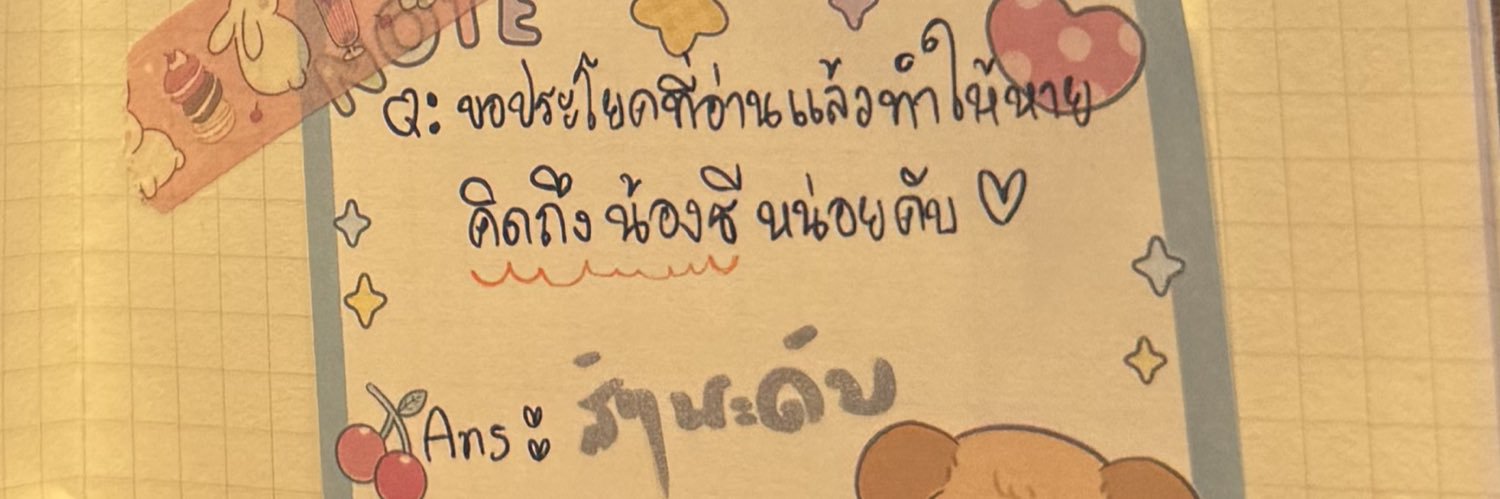 NOTE
Q: ขอประโยคที่อ่านแล้วทำให้หาย
คิดถึง น้องซี หน่อยคับ ♡
Ans : รักนะคับ